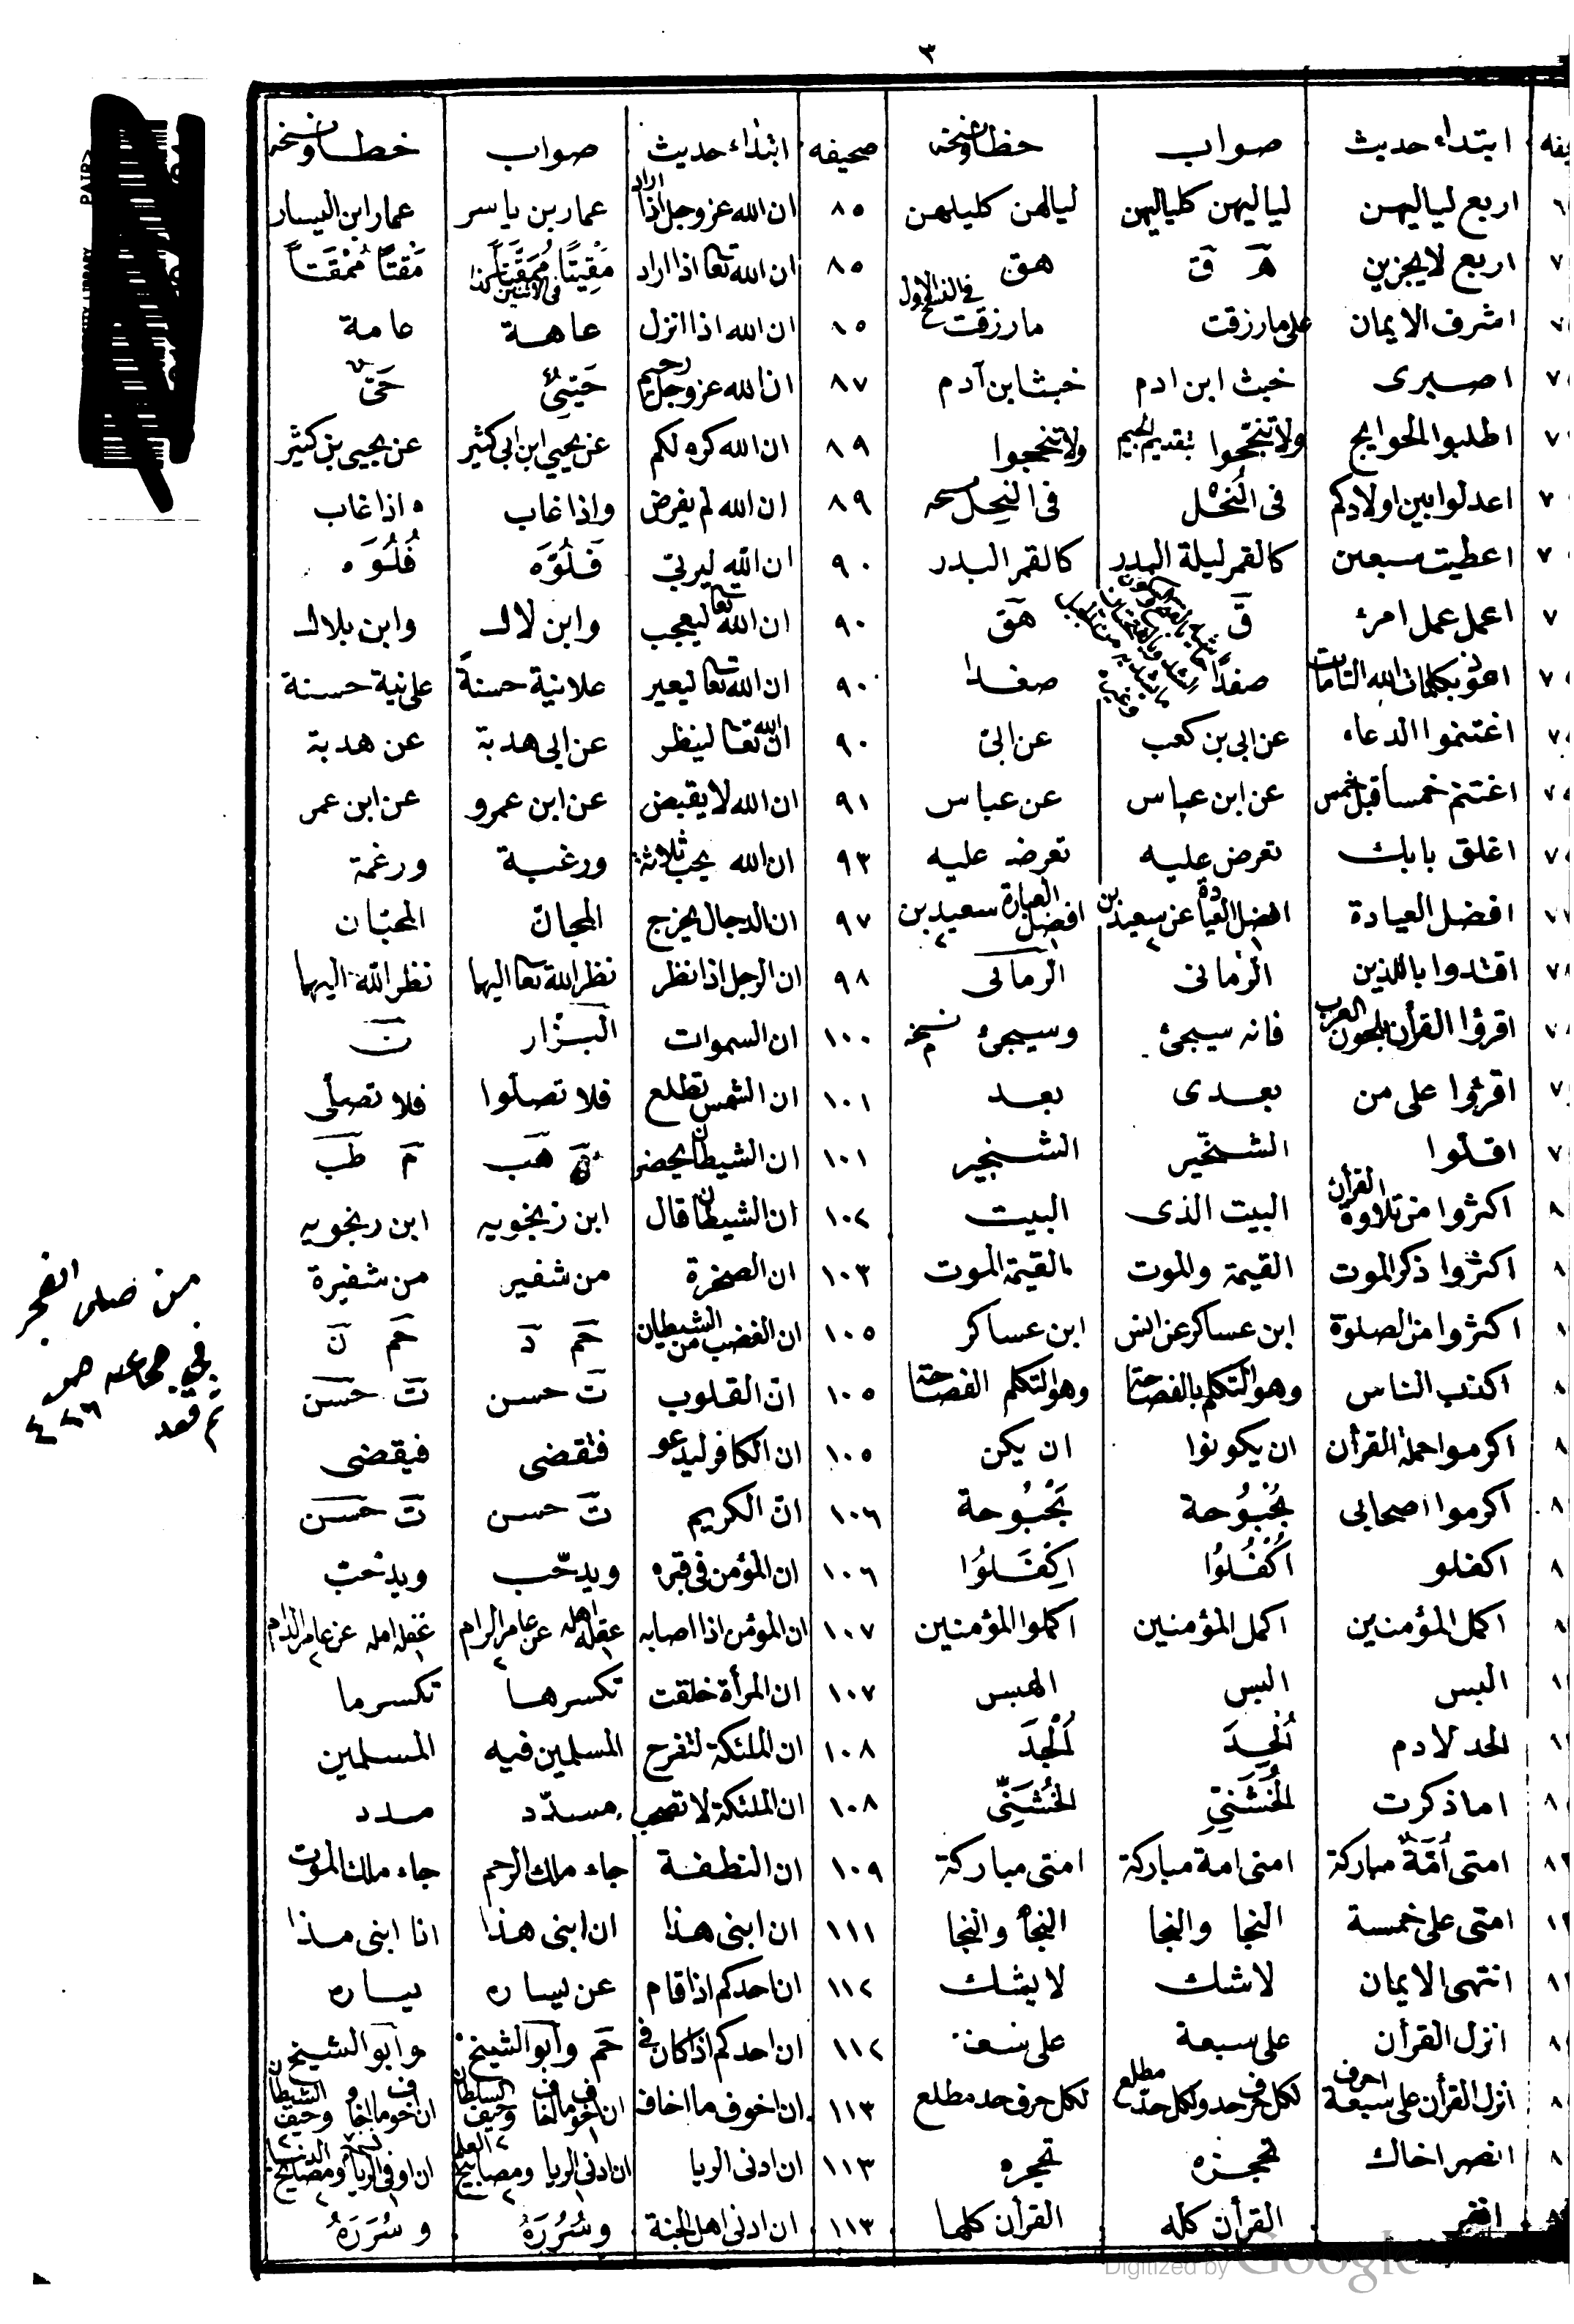 ٣
ابتداء حديث صواب خطا ونسخه صحيفه ابتداء حديث صواب خطا ونسخه
اربع لياليهن لياليهن كلياليهن ليالهن كليلهن ٨٥ ان الله عزوجل اذا اراد عمار بن ياسر عمار ابن اليسار
اربع لا يجزين هَ ق هق ٨٥ ان الله تعا اذا اراد مَقِيتًا مُمَقَّتاً مَقْتاً مُمْقَتاً
اشرف الايمان على ما رزقت ما رزقت ٨٥ ان الله اذا انزل عاهة عامة
اصبرى خبث ابن ادم خبشا بن آدم ٨٧ ان الله عزوجل رحيم حَيِىٌّ حَىّ
اطلبوا الحوايج ولا تنجحوا بتقديم الجيم ولا تنججوا ٨٩ ان الله كره لكم عن يحيي ابن ابي كثير عن يحيى بن كثير
اعدلوا بين اولادكم فى النُحْل فى النِحِل نسخه ٨٩ ان الله لم يفرض واذا غاب ه اذا غاب
اعطيت سبعين كالقمر ليلة البدر كالقمر البدر ٩٠ ان الله ليربي فَلُوَّه فُلُوَه
اعمل عمل امرئ ق هق ٩٠ ان الله تعا ليعجب وابن لال وابن بلال
اعوذ بكلمات الله التامات صفدًا صفدا ٩٠ ان الله تعا ليعير علانية حسنةً على نية حسنة
اغتنموا الدعاء عن ابى بن كعب عن ابىّ ٩٠ ان الله تعا لينظر عن ابى هدبة عن هدبة
اغتنم خمسا قبل خمس عن ابن عباس عن عباس ٩١ ان الله لا يقبض عن ابن عمرو عن ابن عمر
اغلق بابك تعرض عليه تعرضه عليه ٩٣ ان الله يحب ثلاثة ورغبة ورغمة
افضل العيادة افضل العيادة عن سعيد بن افضل العبارة سعيد بن ٩٧ ان الدجال يخرج المجانّ المحبّان
اقتدوا باللذين الرمانى الرمآلى ٩٨ ان الرجل اذا نظر نظر الله تعا اليها نظر الله اليهما
اقرؤا القرأن بلحون العرب فانه سيجئ وسيجئ نسخه ١٠٠ ان السموات البزار ن
اقرؤا على من بعدى بعد ١٠١ ان الشمس تطلع فلا تصلّوا فلا تصلّى
اقلّوا الشخّير الشنجير ١٠١ ان الشيطان يحضر م هب م طب
اكثروا من تلاوة القرأن البيت الذى البيت ١٠٢ ان الشيطان قال ابن زنجويه ابن رنجويه
اكثروا ذكر الموت القيمة والموت القيمة الموت ١٠٣ ان الصخرة من شفير من شفيرة
اكثروا من الصلوة ابن عساكر عن انس ابن عساكر ١٠٥ ان الغضب من الشيطان حم د حم ن
اكذب الناس وهو التكلم بالفصاحة وهو التكلم الفصاحة ١٠٥ ان القلوب ت حسن ت حسن
اكرموا حملة القرأن ان يكونوا ان يكن ١٠٥ ان الكافر ليدعو فتقضى فيقضى
اكرموا اصحابى بُحْبُوُحة بَحْبُوُحة ١٠٦ ان الكريم ت حسن ت حسن
اكفلو اُكْفُلُوُا اكِفَلوُا ١٠٦ ان المؤمن فى قبره ويدحّب ويدخب
اكمل المؤمنين اكمل المؤمنين اكملوا المؤمنين ١٠٧ ان المؤمن اذا اصابه عقله اهله عن عامر الرام غفله امله عن عامر الدام
البس البس الهبس ١٠٧ ان المرأة خلقت تكسرها تكسرما
الحد لادم اُلْحِدَ اَلْحَدَ ١٠٨ ان الملئكة لتفرح المسلمين فيه المسلمين
اما ذكرت الخُشَنىّ الخُشَيَنّى ١٠٨ ان الملئكة لا تصحب مسدّد مدد
امتى اُمَّةٌ مباركة امتى امة مباركة امتى مباركة ١٠٩ ان النطفة جاء ملك الرحم جاء ملك الموت
امتى على خمسة النجا والنجا النجأ والنجا ١١١ ان ابنى هذا ان ابنى هذا انا ابنى مذا
انتهى الايمان لا شك لا يشك ١١٢ ان احدكم اذا قام عن يساره يساره
انزل القرأن على سبعة ١١٢ ان احدكم اذا كان فى حم وابو الشيخ وابو الشيخ
انزل القرأن على سبعة احرف لكل حرف حد ولكل حدّ مطلع لكل حرف حد مطلع ١١٣ ان اخوف ما اخاف
انصر اخاك تحجزه تحجره ١١٣ ان ادنى الريا ان ادنى الريا ومصابيح العلم
القرأن كله القرأن كلها ١١٣ ان ادنى اهل الجنة وسُرُرَهُ وسُرَرَهُ
من صلى الفجر
في جماعه
ثم قعد
Digitized by Google